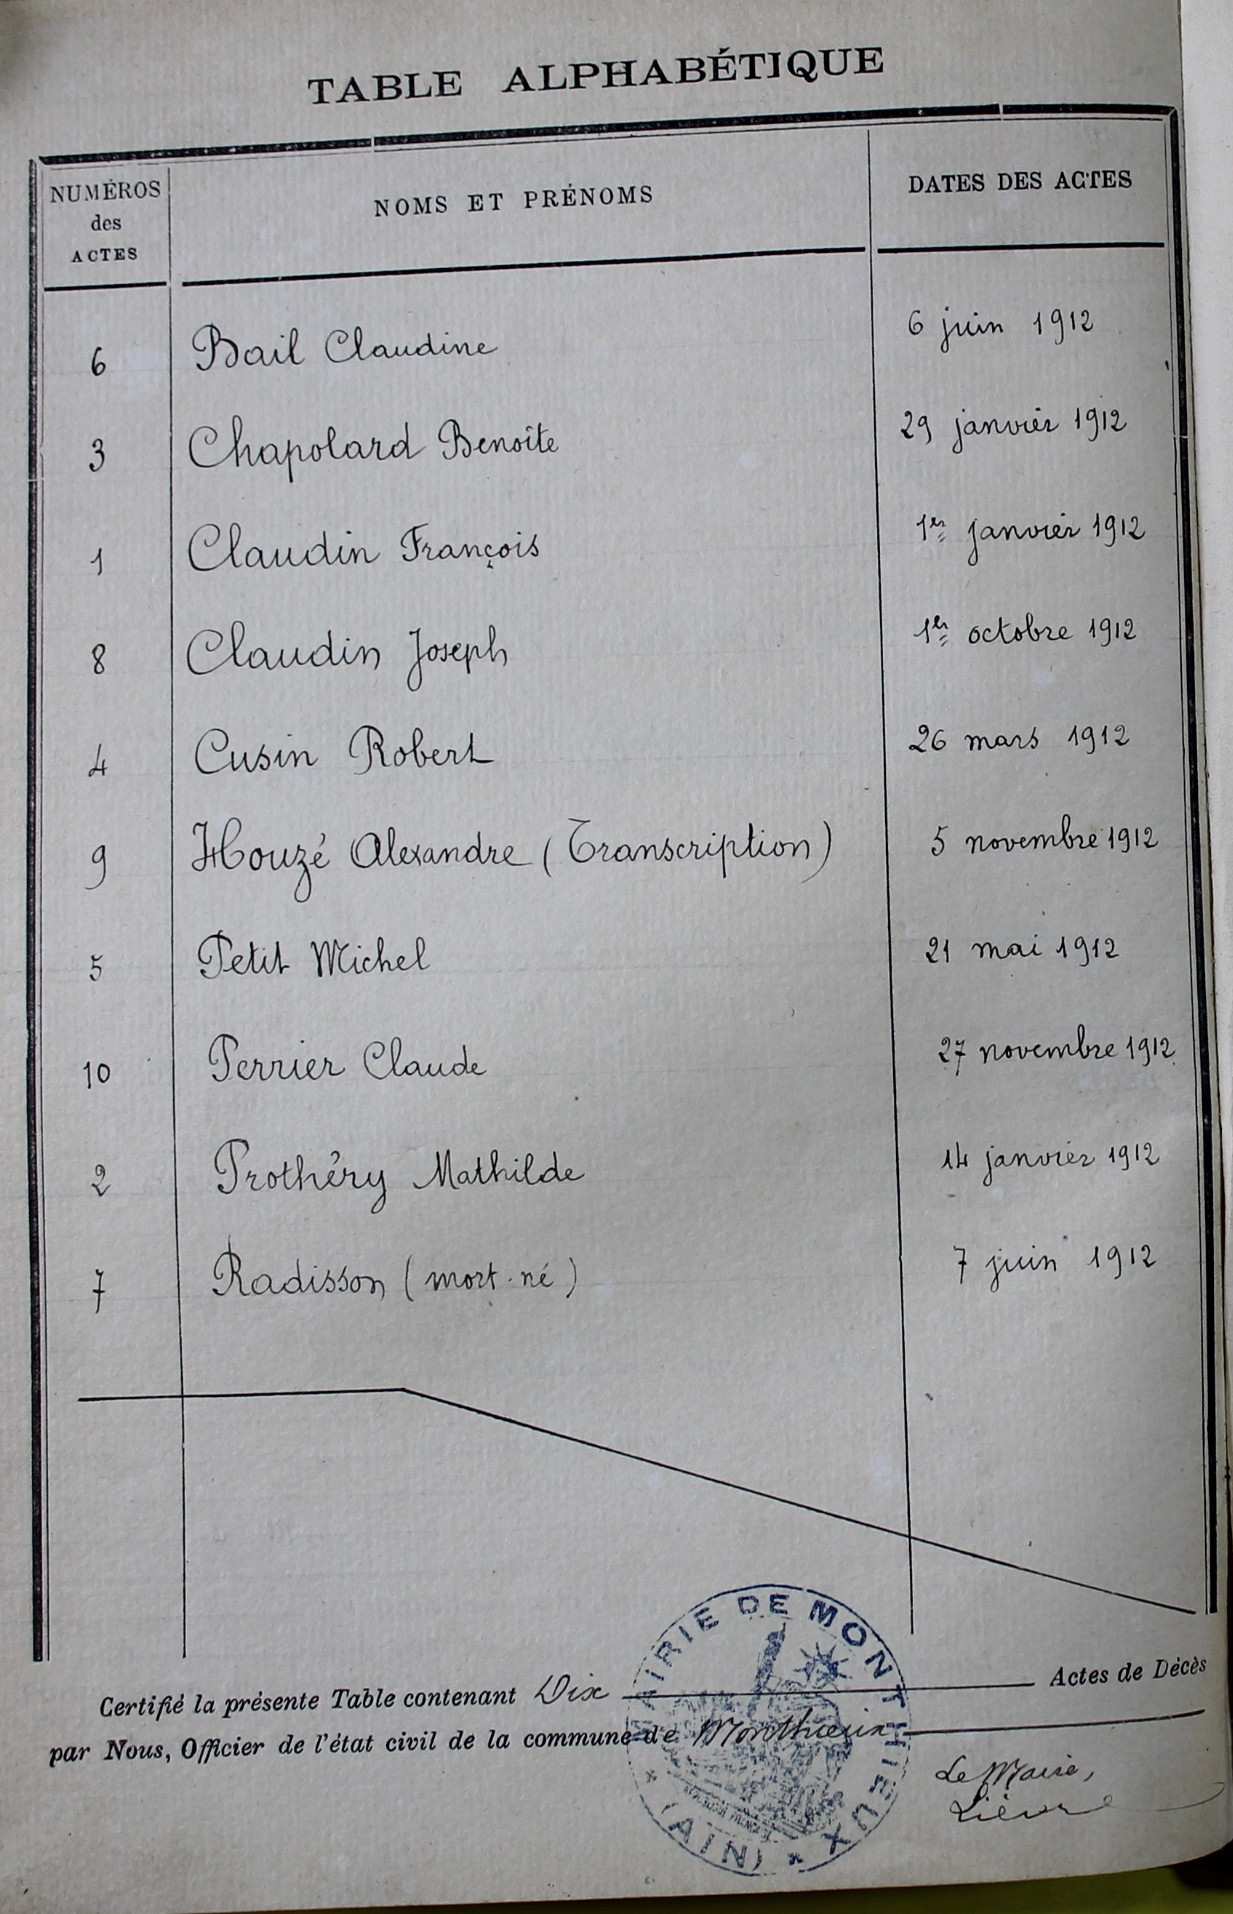 TABLE ALPHABÉTIQUE
NUMÉROS des ACTES NOMS ET PRÉNOMS DATES DES ACTES
6 Bail Claudine 6 juin 1912
3 Chapolard Benoîte 29 janvier 1912
1 Claudin François 1er janvier 1912
8 Claudin Joseph 1er octobre 1912
4 Cusin Robert 26 mars 1912
9 Houzé Alexandre (Transcription) 5 novembre 1912
5 Petit Michel 21 mai 1912
10 Perrier Claude 27 novembre 1912
2 Prothéry Mathilde 14 janvier 1912
7 Radisson (mort-né) 7 juin 1912
Certifié la présente Table contenant Dix Actes de Décès
par Nous, Officier de l'état civil de la commune de Monthieux
MAIRIE DE MONTHIEUX
* (AIN) *
Le Maire,
Lièvre